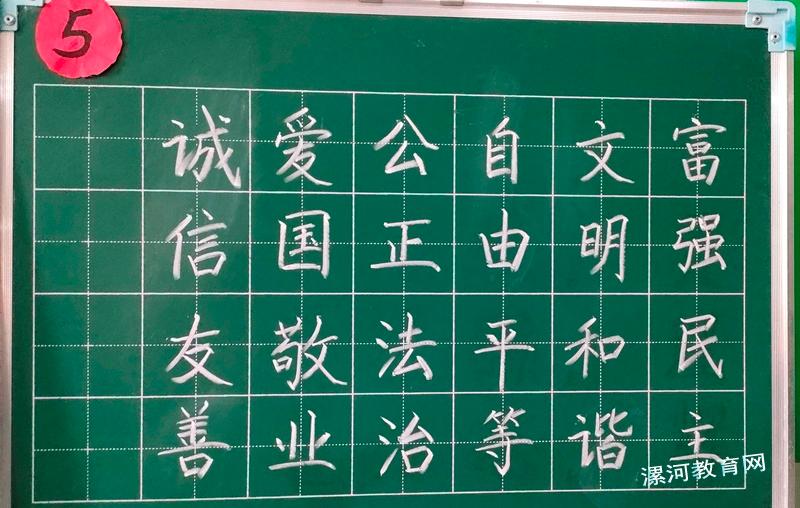 5
富强民主
文明和谐
自由平等
公正法治
爱国敬业
诚信友善
漯河教育网